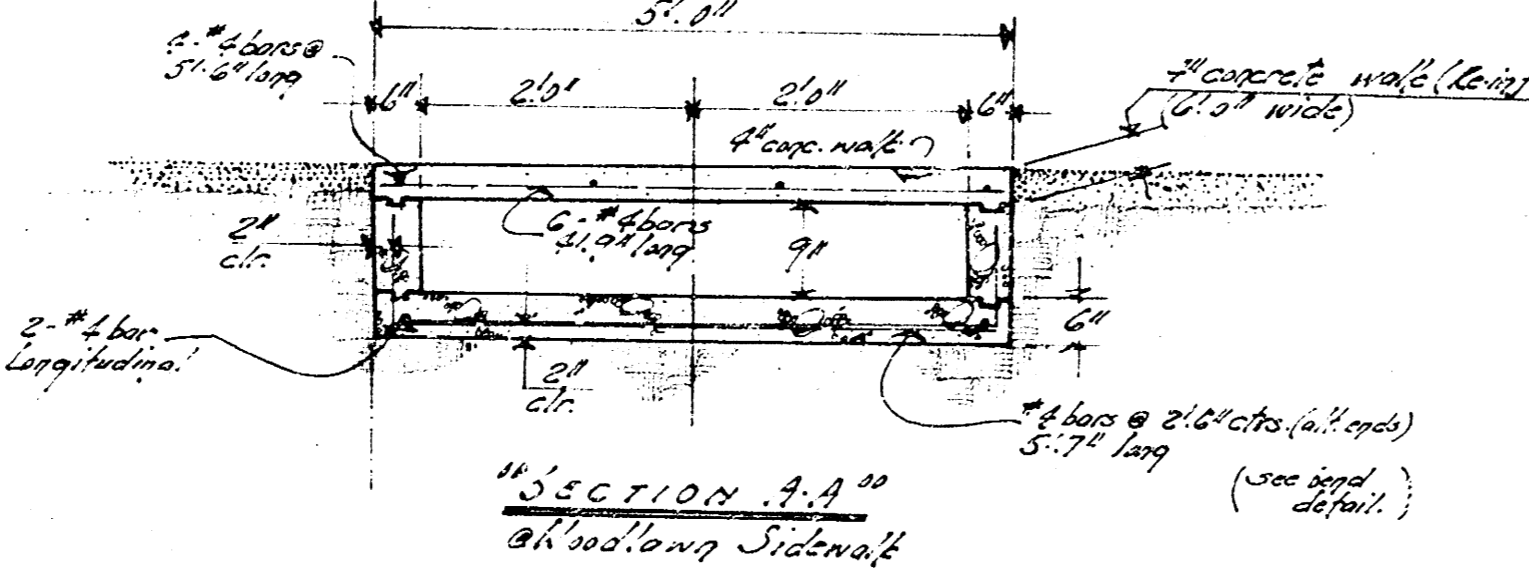 5'.0"
4-#4 bars @
5'-6" long
6"
2'.0"
2'.0"
6"
4" concrete walk (Re-inf
(6'.0" wide)
4" conc. walk
2"
clr.
6-#4 bars
4'.9" long
9"
6"
2-#4 bar
Longitudinal
2"
clr.
#4 bars @ 2'.6" ctrs. (alt. ends)
5'.7" long
(see bend
detail.)
"SECTION A-A"
@ Woodlawn Sidewalk